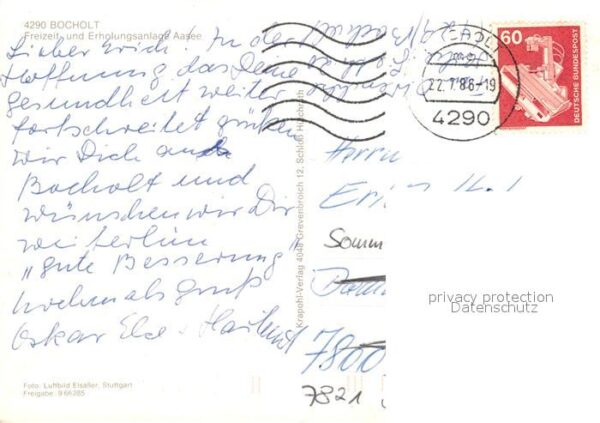 4290 BOCHOLT
Freizeit- und Erholungsanlage Aasee
Lieber Erich. In der
Hoffnung das Deine
gesundheit weiter
fortschreitet grüßen
wir Dich aus
Bocholt und
wünschen wir Dir
weiterhin
"gute Besserung"
nochmals gruß
Oskar Else
Foto: Luftbild Elsäßer, Stuttgart
Freigabe: 9 66 285
Krapohl-Verlag 4048 Grevenbroich 12, Schloß Hülchrath
22.7.86-19
4290
60
DEUTSCHE BUNDESPOST
Herrn
Somm
7800
7821
privacy protection
Datenschutz